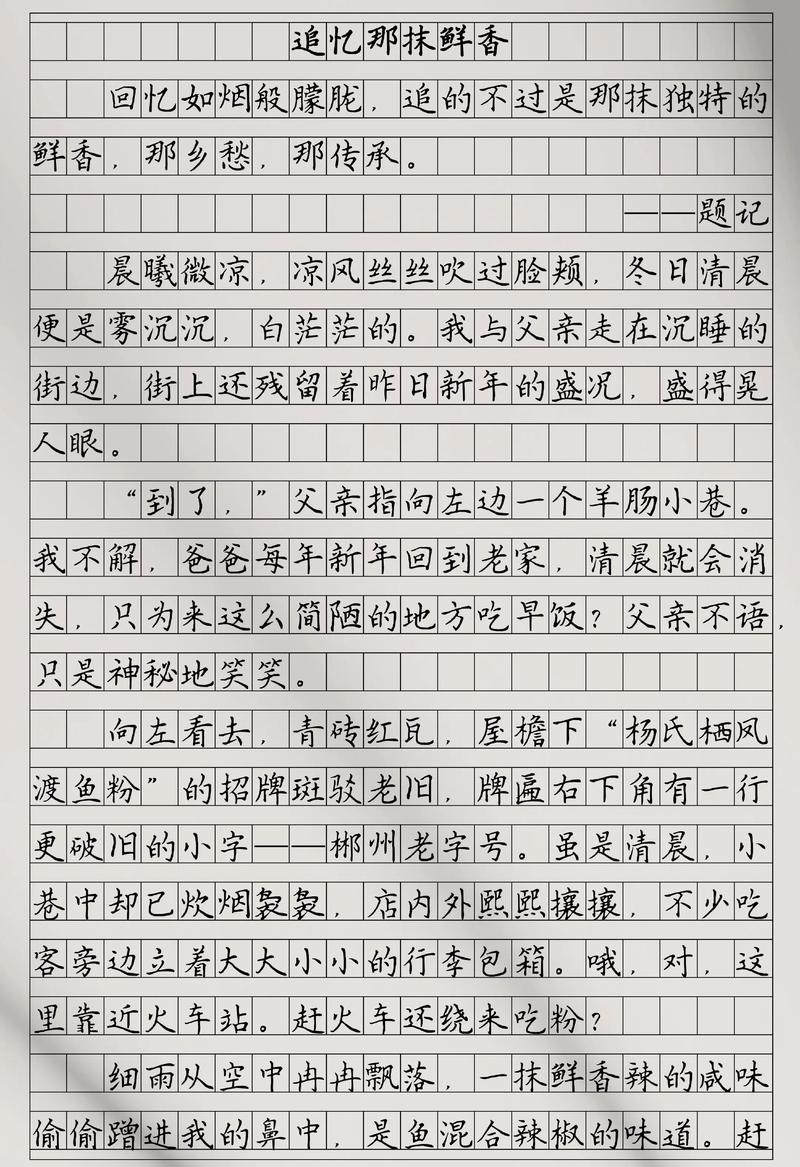 追忆那抹鲜香
回忆如烟般朦胧，追的不过是那抹独特的
鲜香，那乡愁，那传承。
——题记
晨曦微凉，凉风丝丝吹过脸颊，冬日清晨
便是雾沉沉，白茫茫的。我与父亲走在沉睡的
街边，街上还残留着昨日新年的盛况，盛得晃
人眼。
“到了，”父亲指向左边一个羊肠小巷。
我不解，爸爸每年新年回到老家，清晨就会消
失，只为来这么简陋的地方吃早饭？父亲不语，
只是神秘地笑笑。
向左看去，青砖红瓦，屋檐下“杨氏栖凤
渡鱼粉”的招牌斑驳老旧，牌匾右下角有一行
更破旧的小字——郴州老字号。虽是清晨，小
巷中却已炊烟袅袅，店内外熙熙攘攘，不少吃
客旁边立着大大小小的行李包箱。哦，对，这
里靠近火车站。赶火车还绕来吃粉？
细雨从空中冉冉飘落，一抹鲜香辣的咸味
偷偷蹭进我的鼻中，是鱼混合辣椒的味道。赶